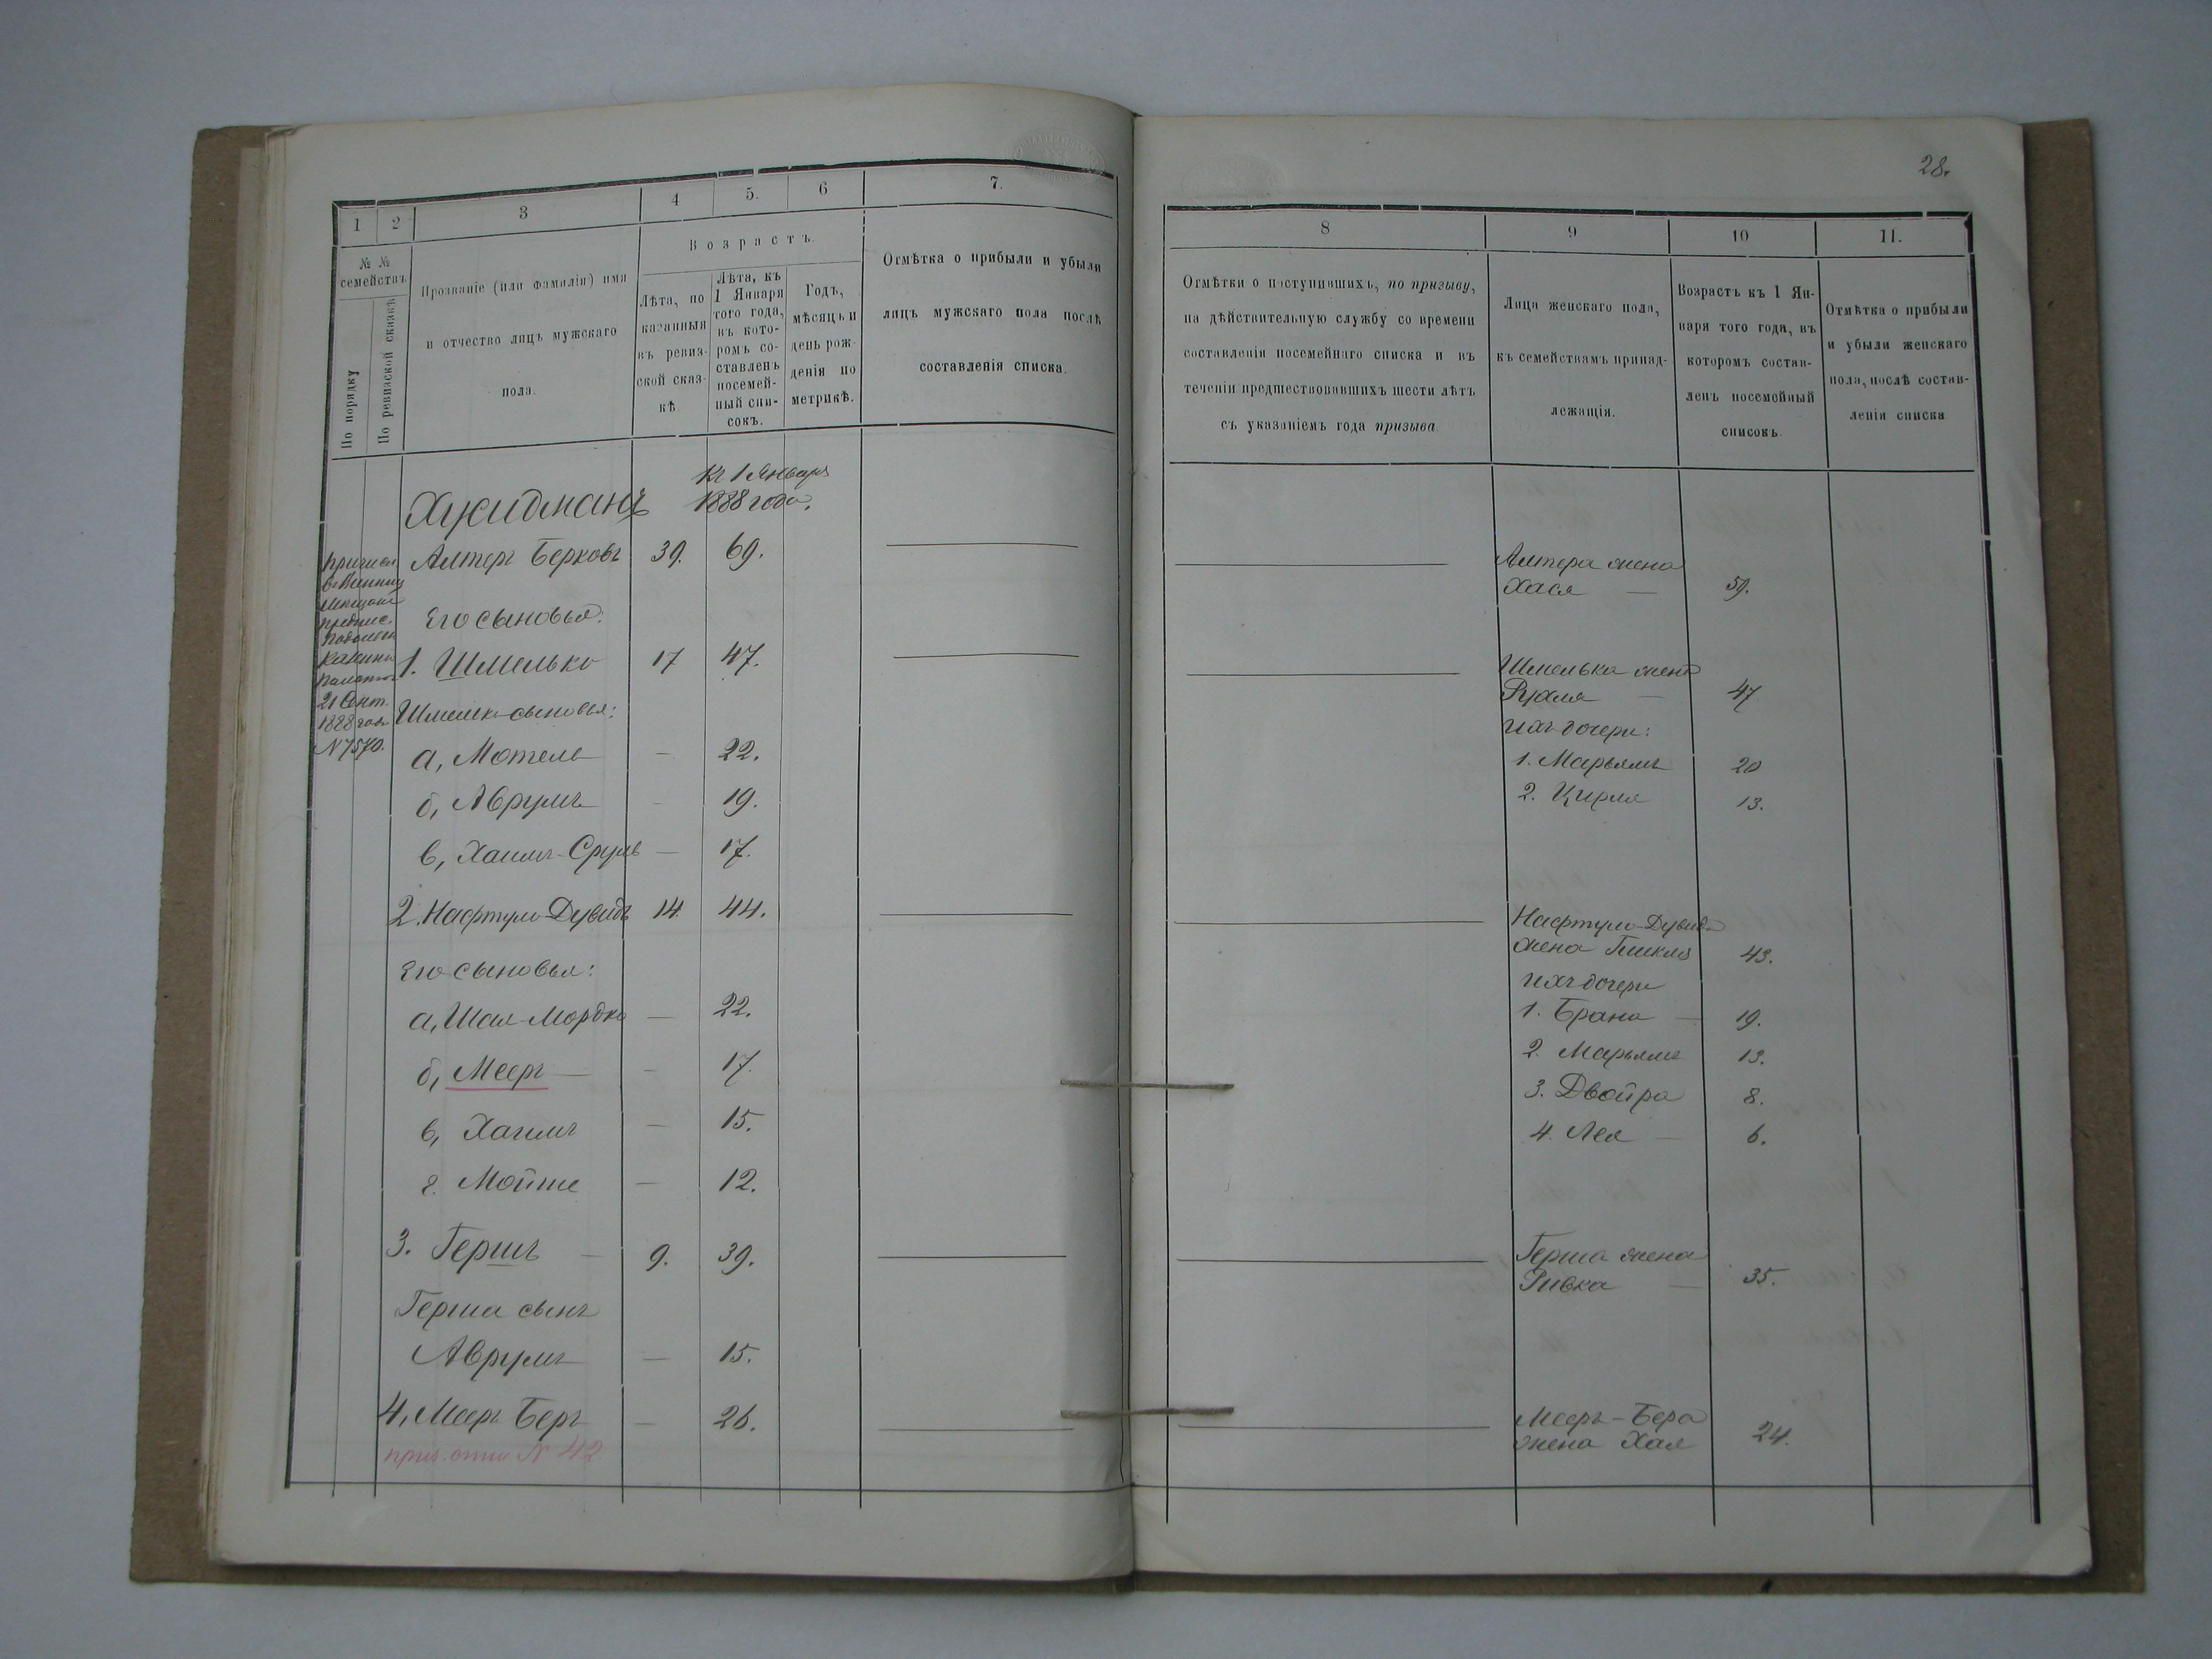 28.
1
2
3
4
5.
6
7.
№ №
семействъ
По порядку
По ревизской сказкѣ
Прозваніе (или фамилія) имя
и отчество лицъ мужскаго
пола.
Возрастъ.
Лѣта, по
казанныя
въ ревиз-
ской сказ-
кѣ
Лѣта, къ
1 Января
того года,
въ кото-
ромъ со-
ставленъ
посемей-
ный спи-
сокъ.
Годъ,
мѣсяцъ и
день рож-
денія по
метрикѣ.
Отмѣтка о прибыли и убыли
лицъ мужскаго пола послѣ
составленія списка.
Къ 1 Января
1888 года.
Алтеръ Берковъ 39. 69.
Его сыновья:
1. Шмелько 17 47.
21 Сент.
1888 года
N 7570.
сыновья:
а, Мотель — 22.
б, Аврумъ — 19.
в, Хаимъ-Сруль — 17.
2. Нафтуло-Дувидъ 14. 44.
Его сыновья:
а, Шая-Мордко — 22.
б, Мееръ — 17.
в, Хаимъ — 15.
г. Мойше — 12.
3. Гершъ — 9. 39.
Герша сынъ
Аврумъ — 15.
4, Мееръ Беръ — 26.
N 42.
8
9
10
11.
Отмѣтки о поступившихъ, по призыву,
на дѣйствительную службу со времени
составленія посемейнаго списка и въ
теченіи предшествовавшихъ шести лѣтъ
съ указаніемъ года призыва.
Лица женскаго пола,
къ семействамъ принад-
лежащія.
Возрастъ къ 1 Ян-
варя того года, въ
которомъ состав-
ленъ посемейный
списокъ.
Отмѣтка о прибыли
и убыли женскаго
пола, послѣ состав-
ленія списка
Алтера жена
Хася — 59.
Шмелька жена
— 47
Ихъ дочери:
1. Марьямъ 20
2. Цирля 13.
Нафтуло-Дувида
жена 43.
Ихъ дочери
1. Брана — 19.
2. Марьямъ 13.
3. Двойра 8.
4. Лея — 6.
Герша жена
Ривка — 35.
Мееръ-Бера
жена Хая 24.